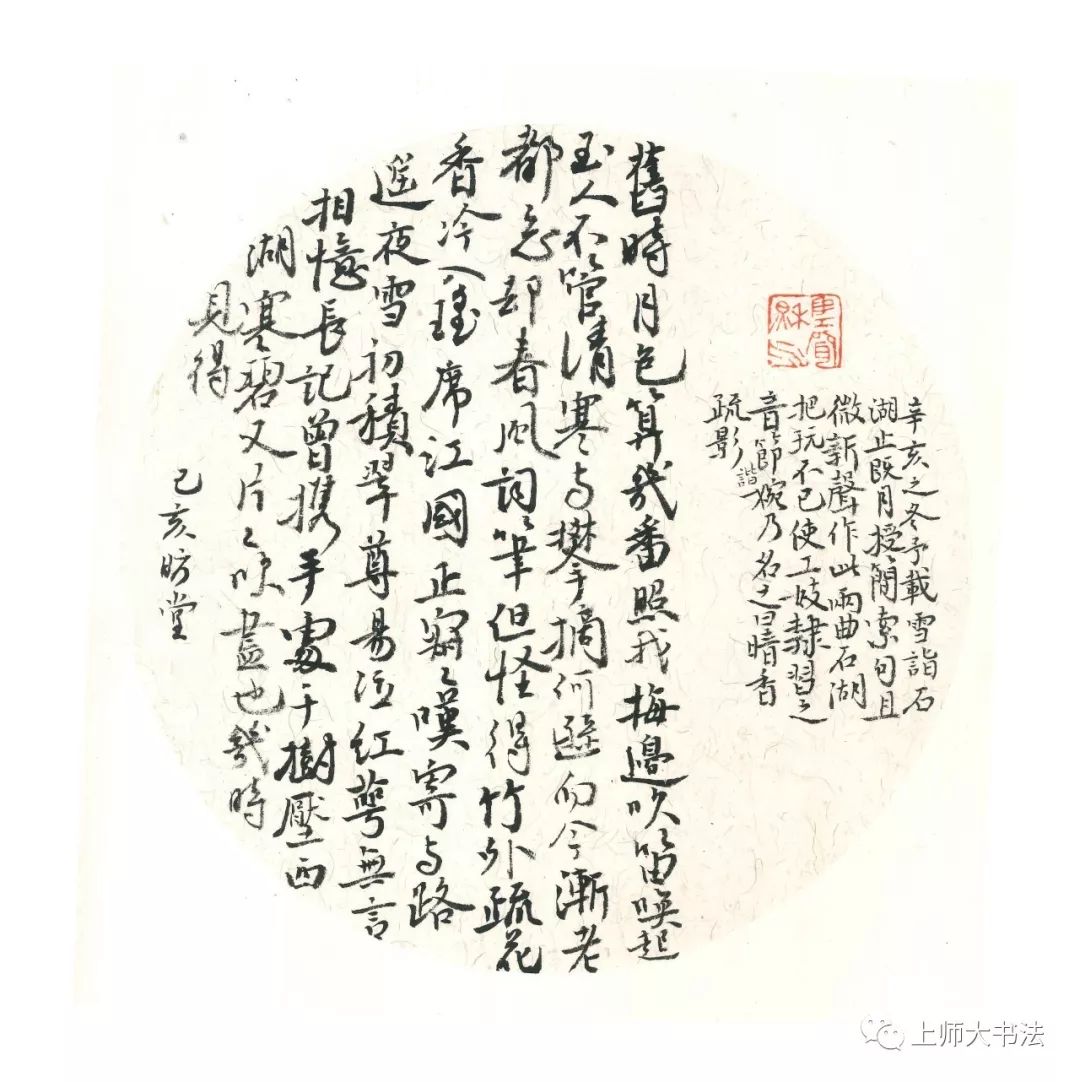 辛亥之冬予載雪詣石
湖止既月授簡索句且
徵新聲作此兩曲石湖
把玩不已使工妓隸習之
音節諧婉乃名之曰暗香
疏影
舊時月色算幾番照我梅邊吹笛喚起
玉人不管清寒与攀摘何遜而今漸老
都忘却春風詞筆但怪得竹外疏花
香冷入瑤席江國正寂〻嘆寄与路
遥夜雪初積翠尊易泣紅萼無言
相憶長記曾携手處千樹壓西
湖寒碧又片〻吹盡也幾時
見得
己亥昉堂
上师大书法